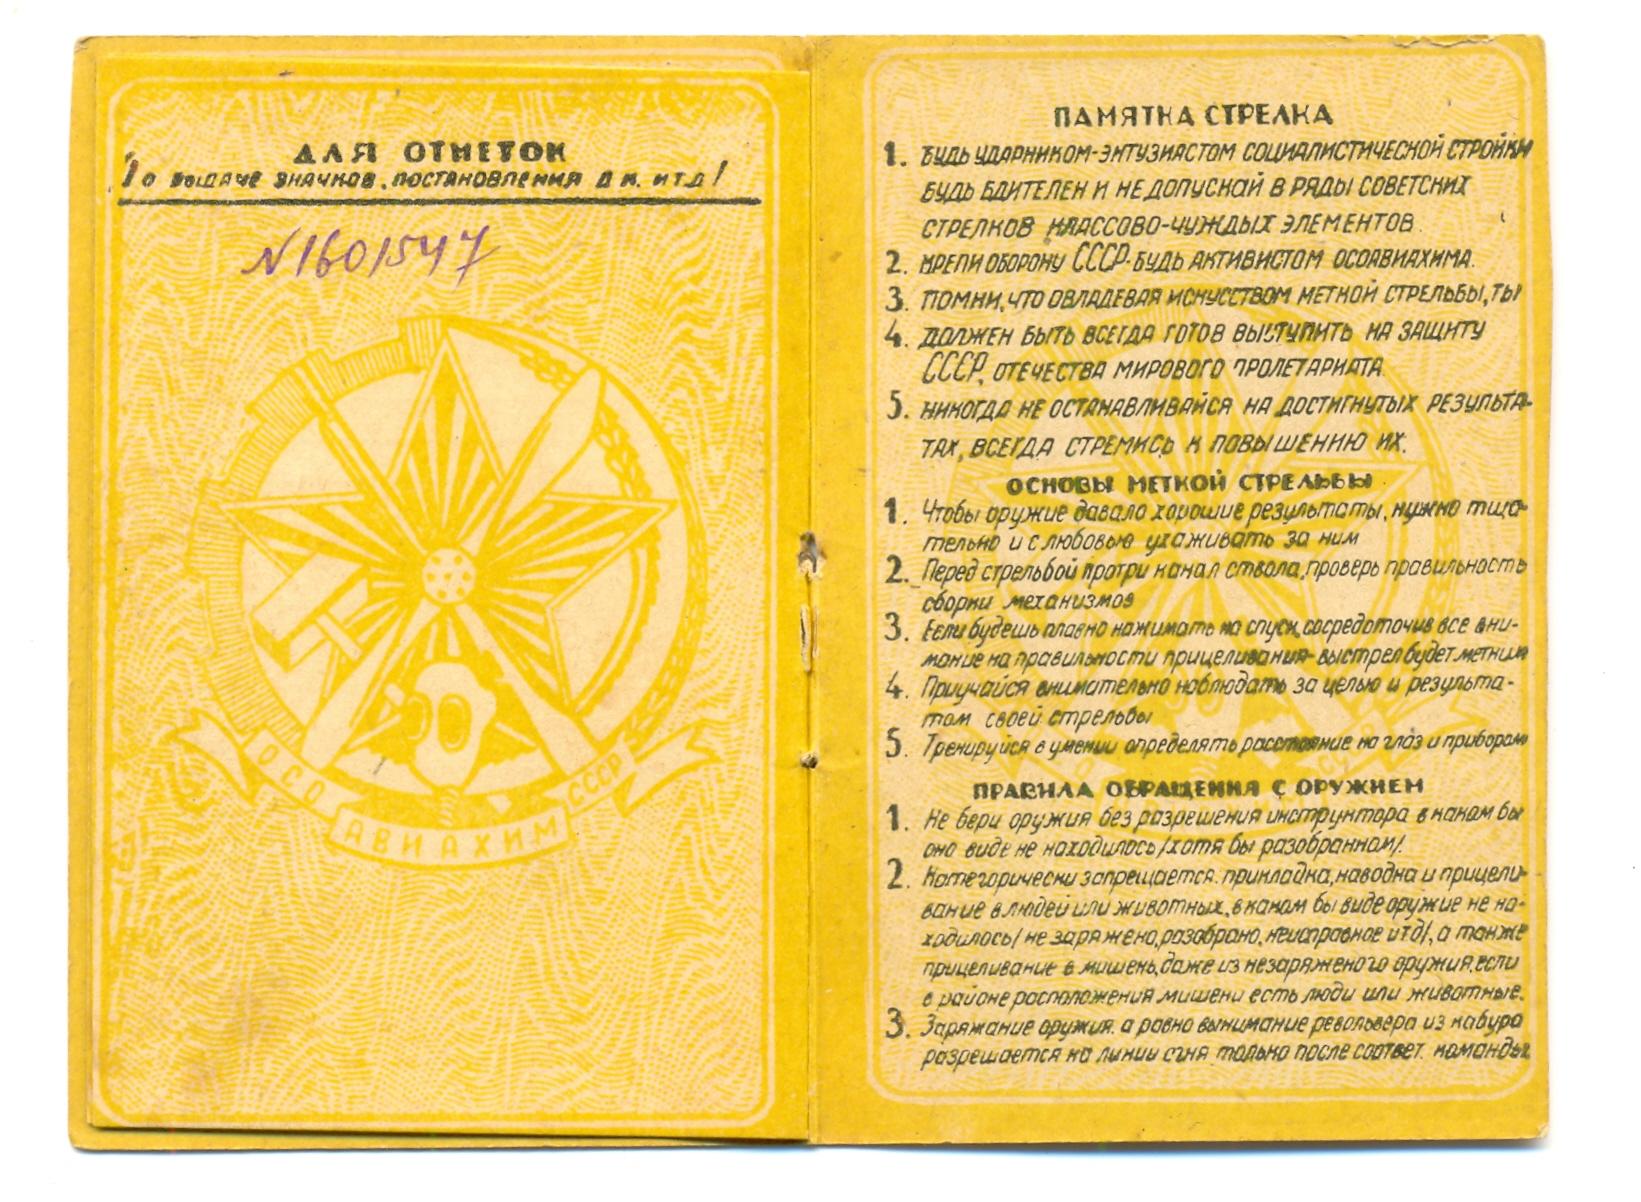 ДЛЯ ОТМЕТОК
/о выдаче значков, постановления д.к. и т.д/
N1601547
ОСО
АВИАХИМ
СССР
ПАМЯТКА СТРЕЛКА
1. БУДЬ УДАРНИКОМ-ЭНТУЗИАСТОМ СОЦИАЛИСТИЧЕСКОЙ СТРОЙКИ
БУДЬ БДИТЕЛЕН И НЕ ДОПУСКАЙ В РЯДЫ СОВЕТСКИХ
СТРЕЛКОВ КЛАССОВО-ЧУЖДЫХ ЭЛЕМЕНТОВ.
2. КРЕПИ ОБОРОНУ СССР-БУДЬ АКТИВИСТОМ ОСОАВИАХИМА.
3. ПОМНИ, ЧТО ОВЛАДЕВАЯ ИСКУССТВОМ МЕТКОЙ СТРЕЛЬБЫ, ТЫ
4. ДОЛЖЕН БЫТЬ ВСЕГДА ГОТОВ ВЫСТУПИТЬ НА ЗАЩИТУ
СССР, ОТЕЧЕСТВА МИРОВОГО ПРОЛЕТАРИАТА
5. НИКОГДА НЕ ОСТАНАВЛИВАЙСЯ НА ДОСТИГНУТЫХ РЕЗУЛЬТА-
ТАХ, ВСЕГДА СТРЕМИСЬ К ПОВЫШЕНИЮ ИХ.
ОСНОВЫ МЕТКОЙ СТРЕЛЬБЫ
1. Чтобы оружие давало хорошие результаты, нужно тща-
тельно и с любовью ухаживать за ним
2. Перед стрельбой протри канал ствола, проверь правильность
сборки механизмов
3. Если будешь плавно нажимать на спуск, сосредоточив все вни-
мание на правильности прицеливания-выстрел будет метким
4. Приучайся внимательно наблюдать за целью и результа-
том своей стрельбы
5. Тренируйся в умении определять расстояние на глаз и прибором
ПРАВИЛА ОБРАЩЕНИЯ С ОРУЖИЕМ
1. Не бери оружия без разрешения инструктора в каком бы
оно виде не находилось/хотя бы разобранном/.
2. Категорически запрещается. прикладка, наводка и прицели-
вание в людей или животных, в каком бы виде оружие не на-
ходилось/не заряжено, разобрано, неисправное итд/, а также
прицеливание в мишень, даже из незаряженого оружия, если
в районе расположения мишени есть люди или животные.
3. Заряжание оружия. а равно вынимание револьвера из кабура
разрешается на линии огня только после соответ. команды.